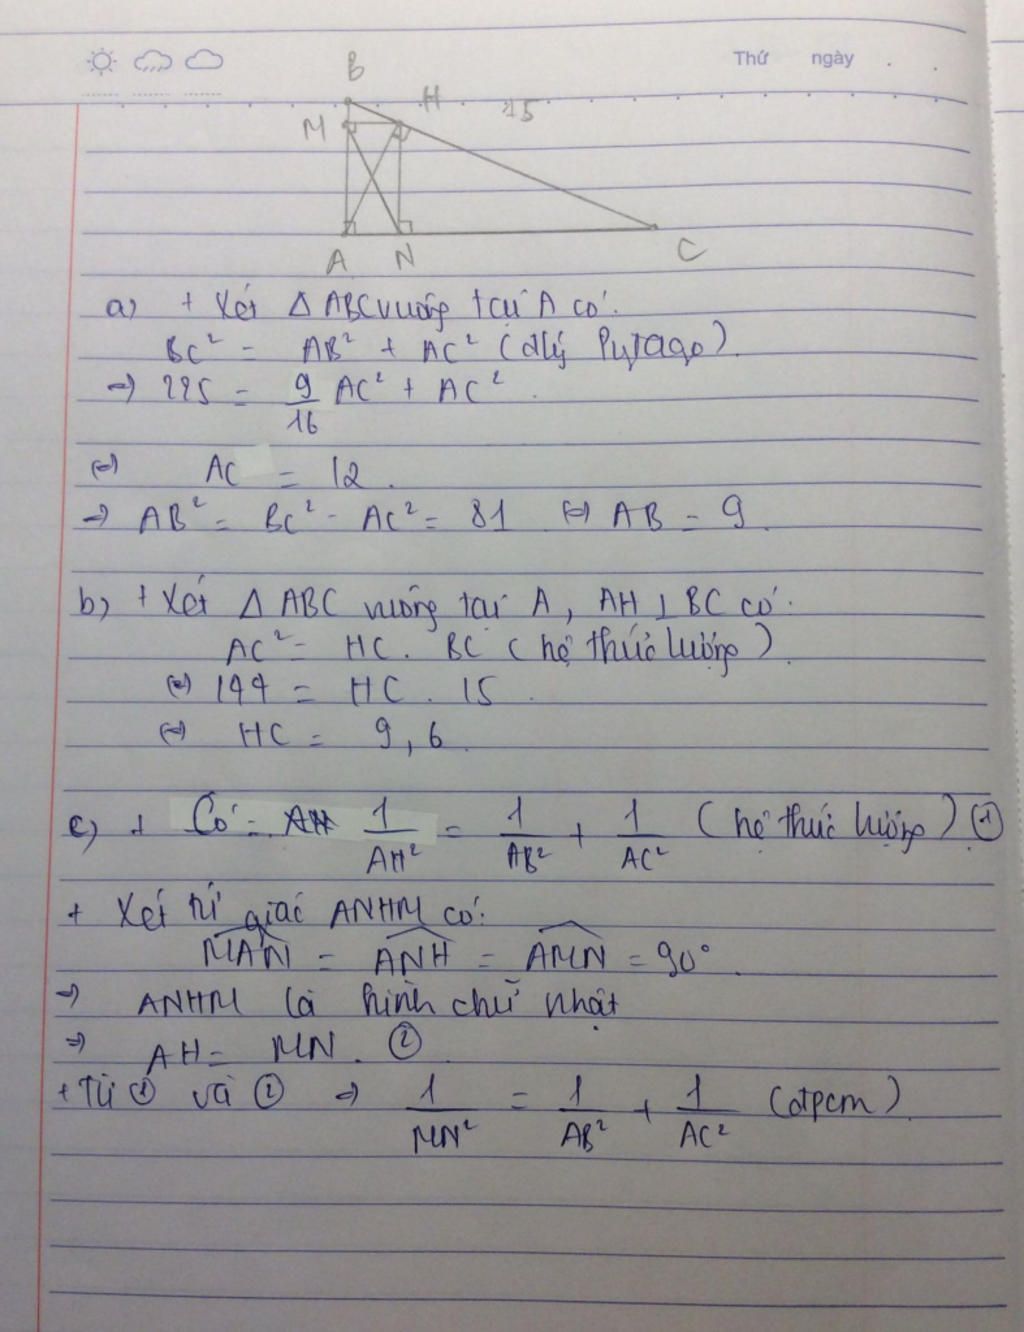 Thứ ngày
B
H 15
M
A N C
a) + Xét Δ ABC vuông tại A có:
BC² = AB² + AC² (đlý Pytago).
⇒ 225 = 9/16 AC² + AC².
⇔ AC = 12.
⇒ AB² = BC² - AC² = 81 ⇔ AB = 9.
b) + Xét Δ ABC vuông tại A, AH ⊥ BC có:
AC² = HC. BC (hệ thức lượng).
⇔ 144 = HC. 15.
⇔ HC = 9,6.
c) + Có: 1/AH² = 1/AB² + 1/AC² (hệ thức lượng) ①
+ Xét tứ giác ANHM có:
MAN = ANH = AMN = 90°.
⇒ ANHM là hình chữ nhật
⇒ AH = MN. ②.
+ Từ ① và ② ⇒ 1/MN² = 1/AB² + 1/AC² (đpcm).